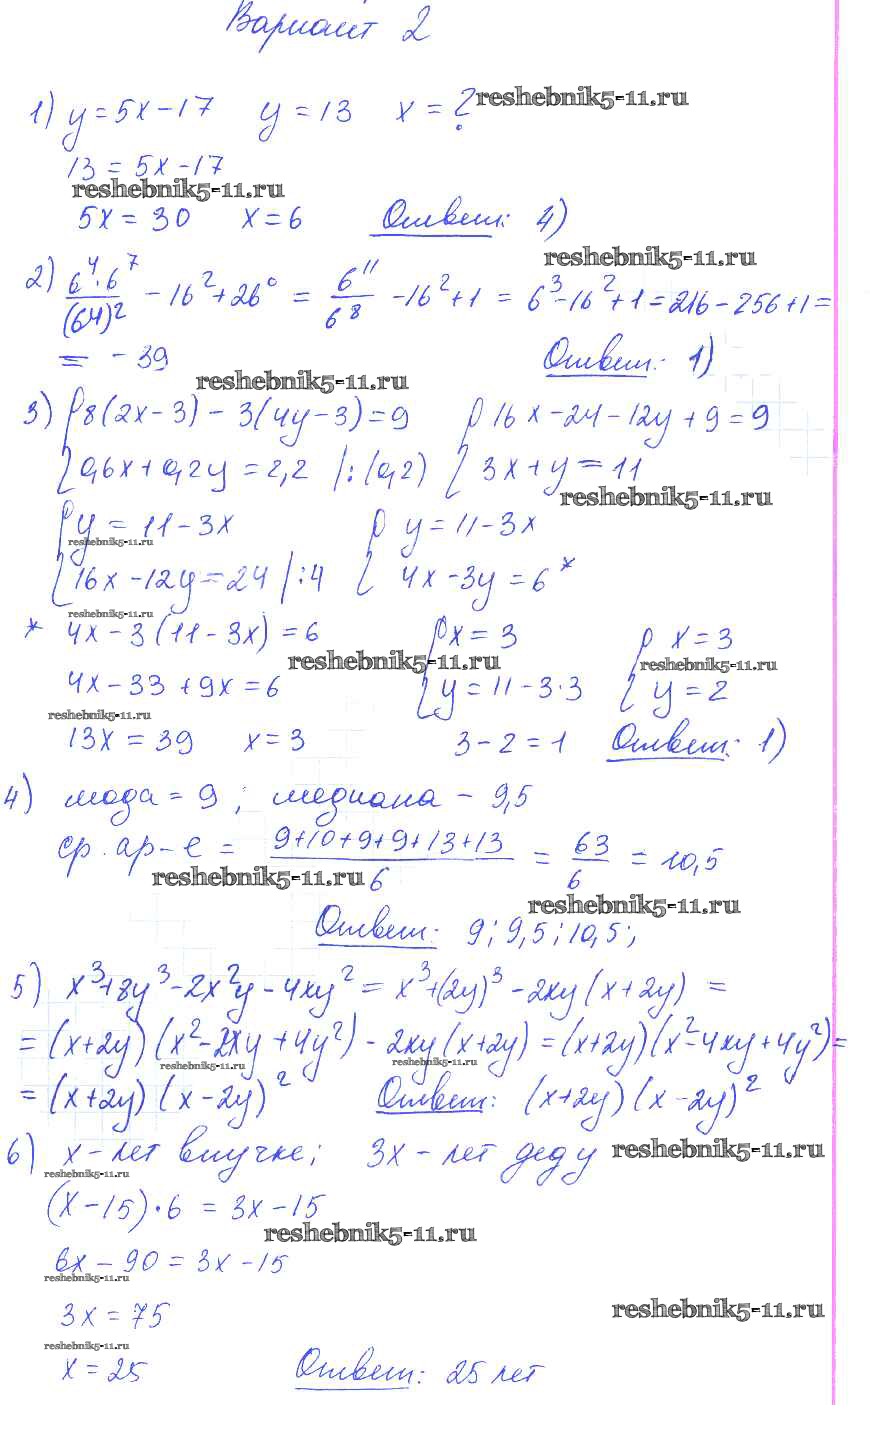 Вариант 2
1) y = 5x - 17 y = 13 x = ? reshebnik5-11.ru
13 = 5x - 17
reshebnik5-11.ru
5x = 30 x = 6 Ответ: 4)
reshebnik5-11.ru
2) (6⁴·6⁷)/(6⁴)² - 16² + 26⁰ = 6¹¹/6⁸ - 16² + 1 = 6³ - 16² + 1 = 216 - 256 + 1 =
= -39 Ответ: 1)
reshebnik5-11.ru
3) { 8(2x - 3) - 3(4y - 3) = 9 { 16x - 24 - 12y + 9 = 9
{ 0,6x + 0,2y = 2,2 |:(0,2) { 3x + y = 11
reshebnik5-11.ru
{ y = 11 - 3x { y = 11 - 3x
reshebnik5-11.ru
{ 16x - 12y = 24 |:4 { 4x - 3y = 6 *
reshebnik5-11.ru
* 4x - 3(11 - 3x) = 6 { x = 3 { x = 3
reshebnik5-11.ru reshebnik5-11.ru
4x - 33 + 9x = 6 { y = 11 - 3·3 { y = 2
reshebnik5-11.ru
13x = 39 x = 3 3 - 2 = 1 Ответ: 1)
4) мода = 9; медиана - 9,5
ср. ар-е = (9+10+9+9+13+13)/6 = 63/6 = 10,5
reshebnik5-11.ru
reshebnik5-11.ru
Ответ: 9; 9,5; 10,5;
5) x³ + 8y³ - 2x²y - 4xy² = x³ + (2y)³ - 2xy(x + 2y) =
= (x + 2y)(x² - 2xy + 4y²) - 2xy(x + 2y) = (x + 2y)(x² - 4xy + 4y²) =
reshebnik5-11.ru reshebnik5-11.ru
= (x + 2y)(x - 2y)² Ответ: (x + 2y)(x - 2y)²
6) x - лет внучке; 3x - лет деду reshebnik5-11.ru
reshebnik5-11.ru
(x - 15)·6 = 3x - 15
reshebnik5-11.ru
6x - 90 = 3x - 15
reshebnik5-11.ru
3x = 75 reshebnik5-11.ru
reshebnik5-11.ru
x = 25 Ответ: 25 лет